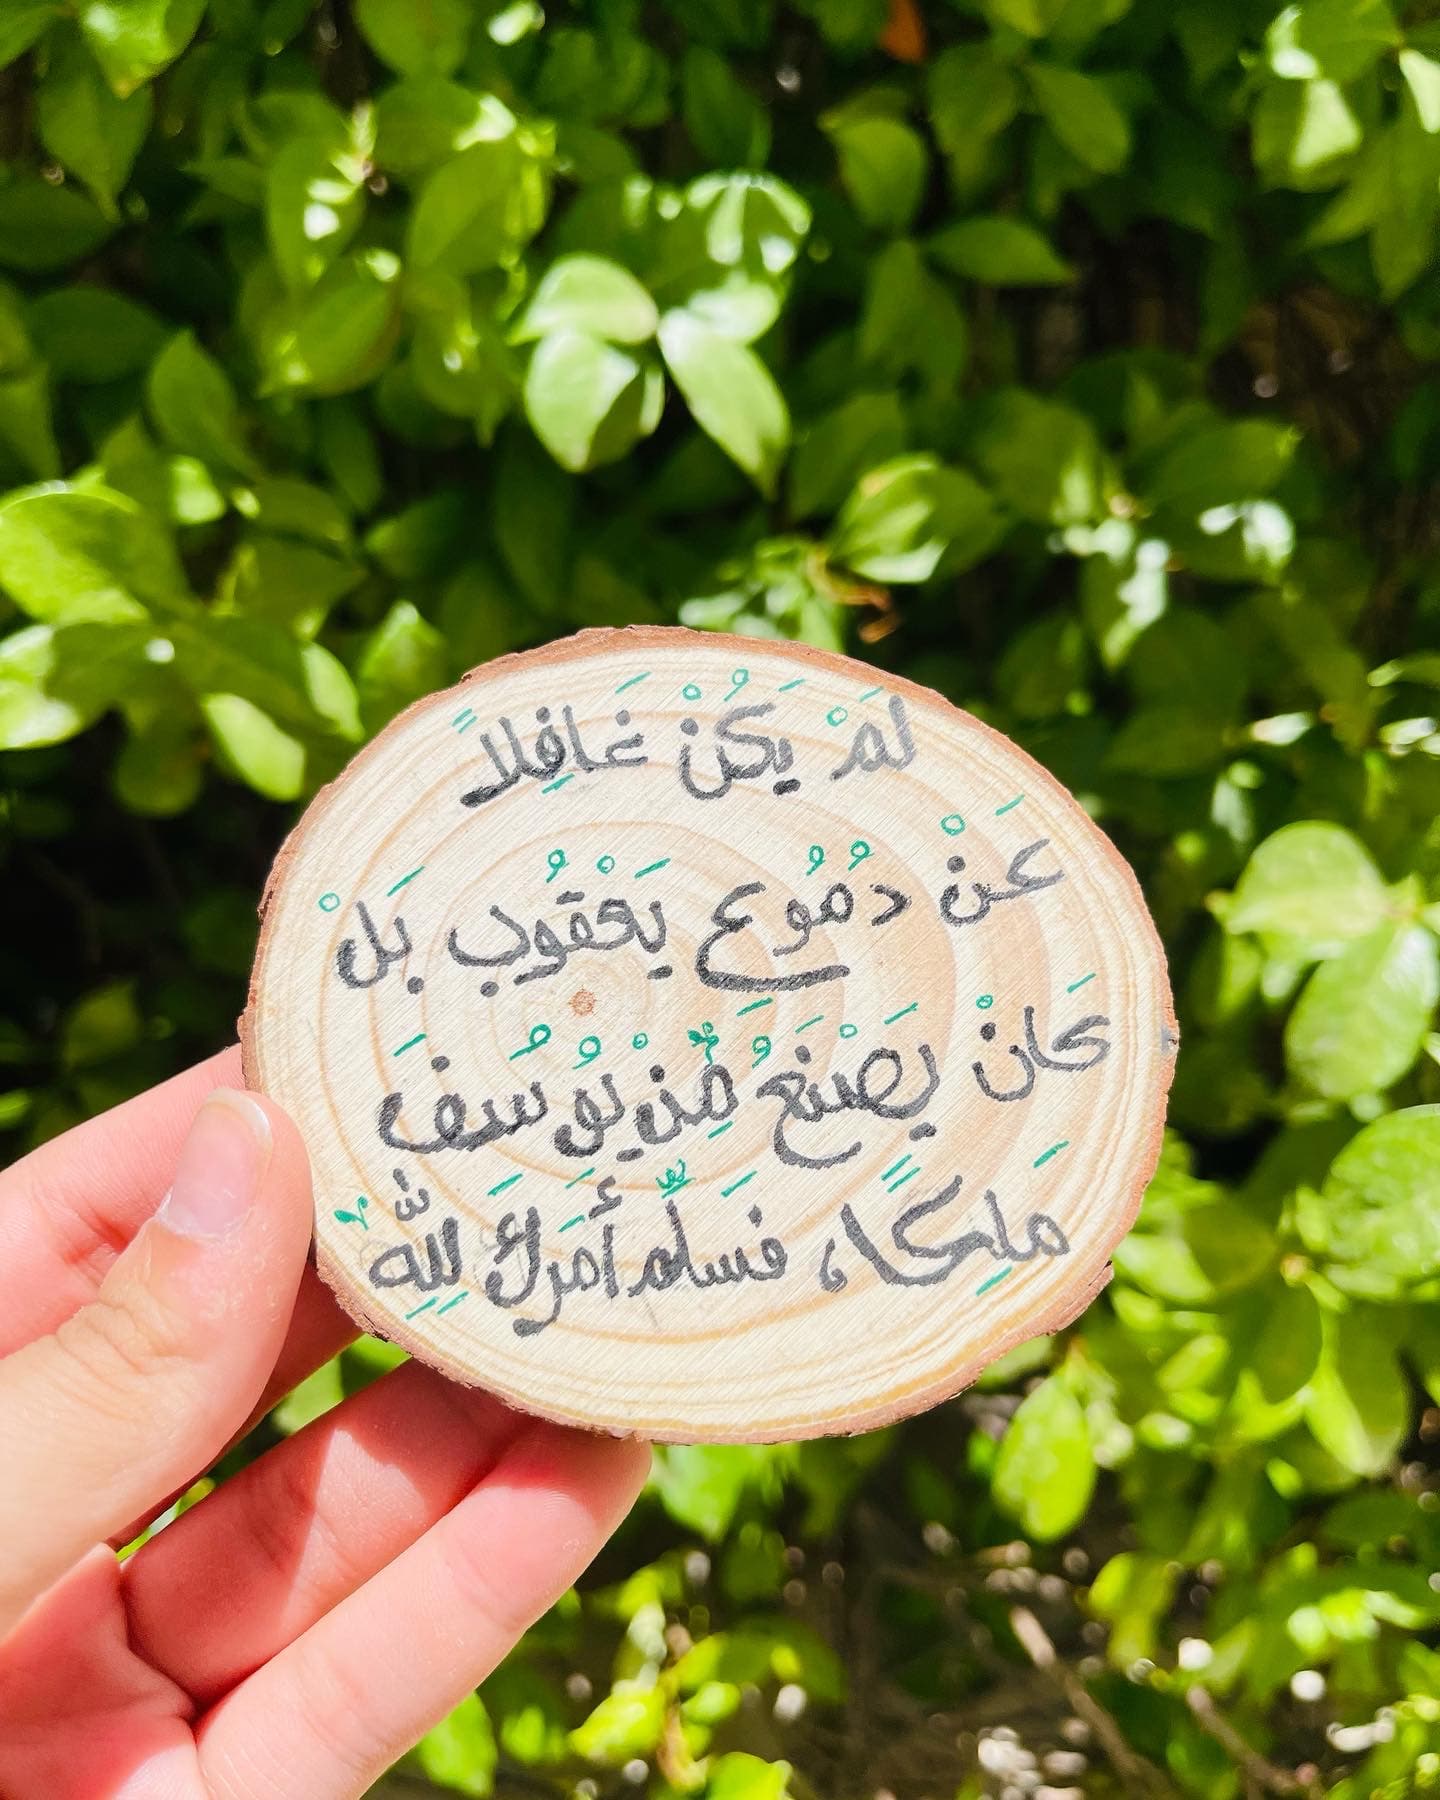 لَمْ يَكُنْ غَافِلاً
عَنْ دُمُوع يَعْقُوب بَلْ
كانْ يَصْنَعُ مِن يُوسُفَ
مَلِكًا، فَسَلِّم أمرَكَ لِلَّهِ